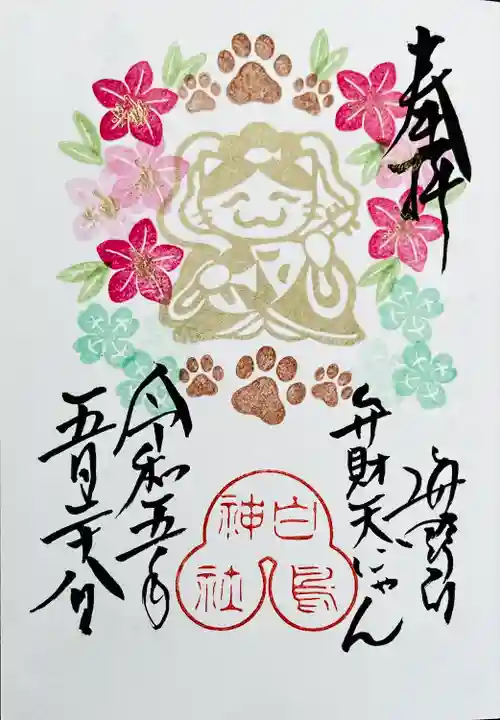 奉拝
海野町
弁財天にゃん
白鳥
神社
令和五年
五月二十八日